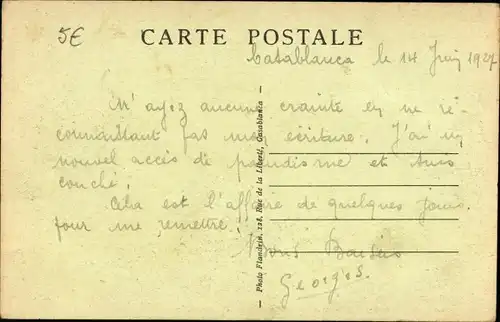 5€
CARTE POSTALE
Casablanca le 14 Juin 1927
N'ayez aucune crainte en ne re-
connaissant pas mon écriture. J'ai un
nouvel accès de paludisme et suis
couché.
Cela est l'affaire de quelques jours
pour me remettre.
Bons Baisers
Georges.
Photo Flandrin, 128, Rue de la Liberté, Casablanca